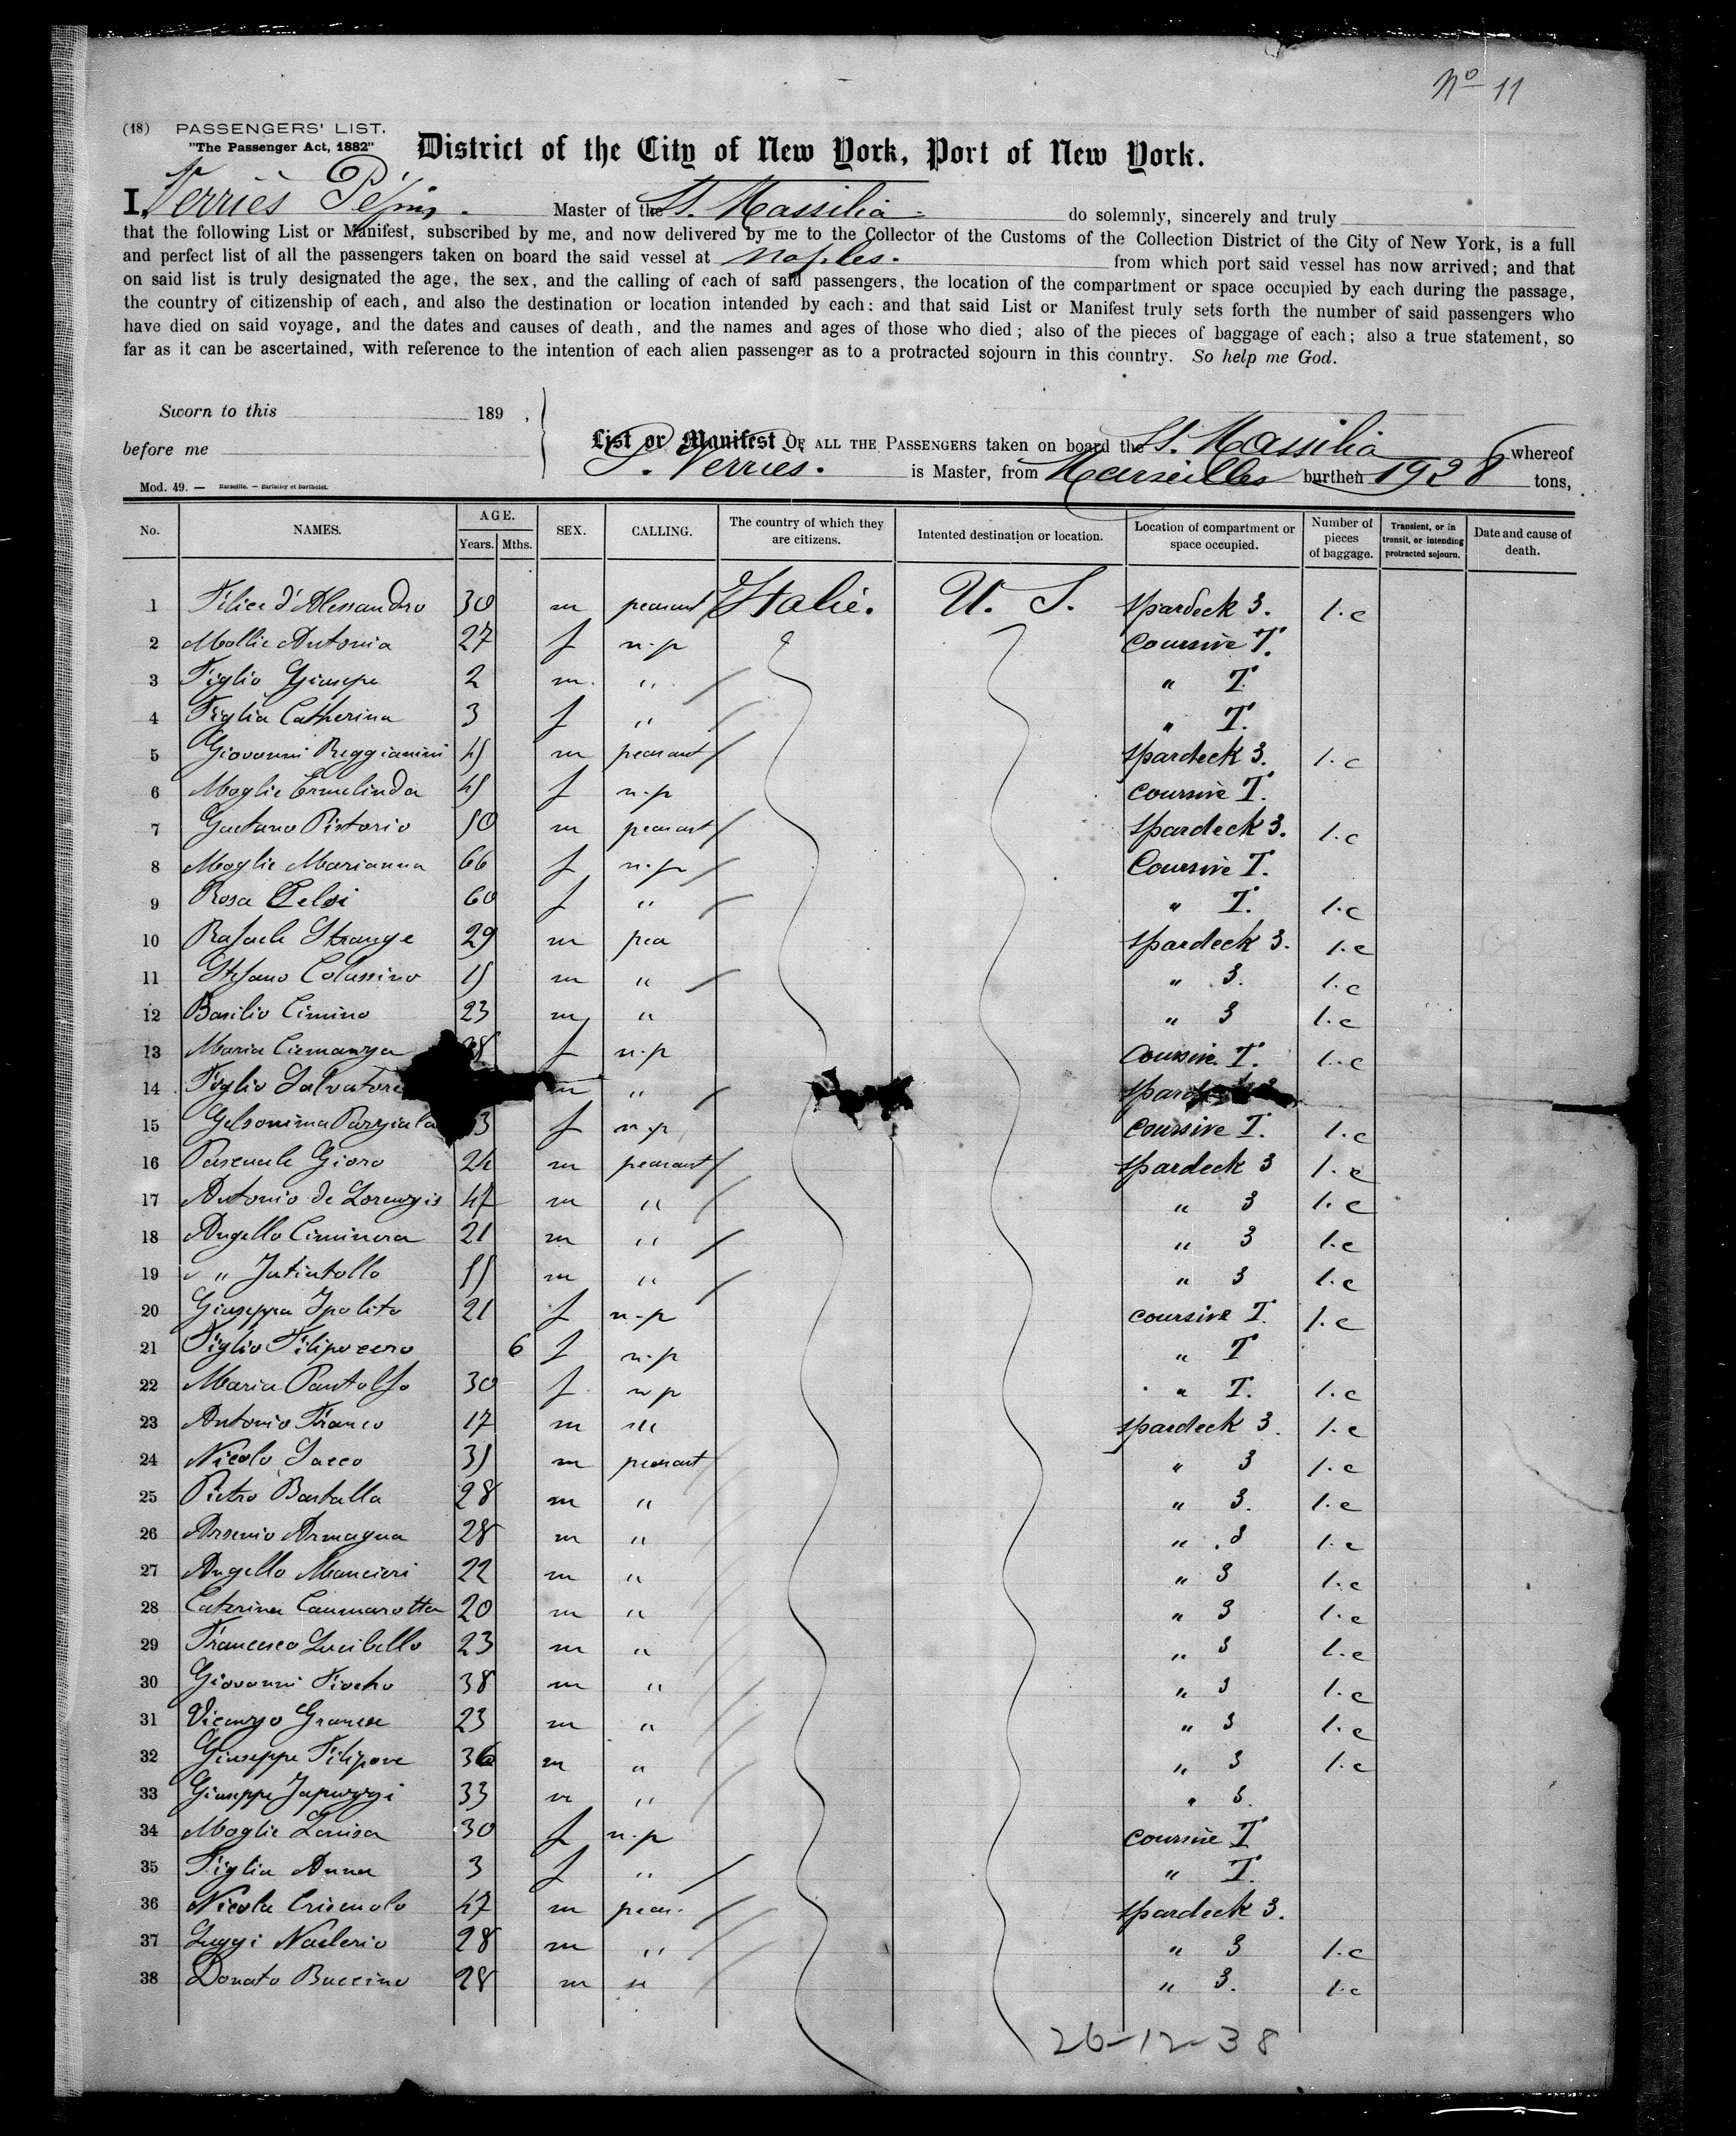 Nº 11
(18) PASSENGERS' LIST.
"The Passenger Act, 1882"
District of the City of New York, Port of New York.
I, Verries Pépin. Master of the St. Massilia. do solemnly, sincerely and truly
that the following List or Manifest, subscribed by me, and now delivered by me to the Collector of the Customs of the Collection District of the City of New York, is a full
and perfect list of all the passengers taken on board the said vessel at Naples. from which port said vessel has now arrived; and that
on said list is truly designated the age, the sex, and the calling of each of said passengers, the location of the compartment or space occupied by each during the passage,
the country of citizenship of each, and also the destination or location intended by each: and that said List or Manifest truly sets forth the number of said passengers who
have died on said voyage, and the dates and causes of death, and the names and ages of those who died; also of the pieces of baggage of each; also a true statement, so
far as it can be ascertained, with reference to the intention of each alien passenger as to a protracted sojourn in this country. So help me God.
Sworn to this 189 ,
before me
List or Manifest OF ALL THE PASSENGERS taken on board the St. Massilia whereof
P. Verries. is Master, from Marseilles burthen 1928 tons,
Mod. 49. — Marseille. — Barlatier et Barthelet.
No. NAMES. AGE. Years. Mths. SEX. CALLING. The country of which they are citizens. Intented destination or location. Location of compartment or space occupied. Number of pieces of baggage. Transient, or in transit, or intending protracted sojourn. Date and cause of death.
1 Felice d'Alessandro 30 m peasant Italie. U. S. Spardeck 3. 1.c
2 Mollie Antonia 27 f n.p Coursive T.
3 Figlio Giusepe 2 m. " " T.
4 Figlia Catherina 3 f " " T.
5 Giovanni Reggianini 45 m peasant Spardeck 3. 1.c
6 Moglie Ermelinda 45 f n.p Coursive T.
7 Gaetano Pistorio 50 m peasant Spardeck 3. 1.c
8 Moglie Marianna 66 f n.p Coursive T.
9 Rosa Celsi 60 f " " T. 1.c
10 Rafaele Strange 29 m pea Spardeck 3. 1.c
11 Stefano Colassino 15 m " " 3. 1.c
12 Basilio Cimino 23 m " " 3 1.c
13 Maria f n.p Coursive T. 1.c
14 Figlio Salvatore m "
15 f n.p Coursive T. 1.c
16 Pascuale Gioro 24 m peasant Spardeck 3 1.c
17 Antonio de Lorenzis 47 m " " 3 1.c
18 Angello Ciminera 21 m " " 3 1.c
19 " " 55 m " " 3 1.c
20 Giuseppa Ipolito 21 f n.p coursive T. 1.c
21 Figlio 6 f n.p " T
22 Maria Pantolfo 30 f. n p " T. 1.c
23 Antonio Franco 17 m " spardeck 3. 1.c
24 Nicolo Sacco 35 m peasant " 3 1.c
25 Pietro Bartalla 28 m " " 3. 1.c
26 Arsenio Armagna 28 m " " 3 1.c
27 Angello Mancieri 22 m " " 3 1.c
28 Caterina Cammarotta 20 m " " 3 1.c
29 Francesco Lucibello 23 m " " 3 1.c
30 Giovanni 38 m " " 3 1.c
31 Vicenzo Granese 23 m " " 3 1.c
32 Giuseppe Filipone 36 m " " 3 1.c
33 Giuseppe 33 m " " 3.
34 Moglie Louisa 30 f n.p coursive T
35 Figlia Anna 3 f " " T.
36 Nicola 47 m peas. Spardeck 3.
37 Luggi Naclerio 28 m " " 3 1.c
38 Donato Buccino 28 m " " 3. 1.c
26-12-38